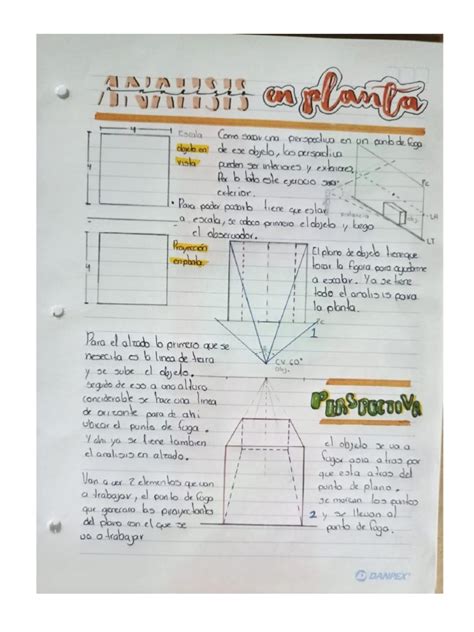 ANALISIS en planta
4
4
Escala
objeto en
vista
Como sacar una perspectiva en un punto de fuga
de ese objeto, las perspectiva
pueden ser interiores y exteriores
Por lo tanto este ejercicio
exterior.
• Para poder pasarlo tiene que estar
a escala, se abaco primero el objeto y luego
el observador.
distancia
LH
LT
4
Proyección
en planta
El plano de objeto tiene que
tocar la figura para ayudarme
a escalar. Ya se tiene
todo el analisis para
la planta.
1
CV. 60°
Obj.
Para el alzado lo primero que se
necesita es la linea de tierra
y se sube el objeto.
seguido de eso a una altura
considerable se hace una linea
de orizonte para de ahi
ubicar el punto de fuga.
Y aha ya se tiene tambien
el analisis en alzado.
PERSPECTIVA
Van a ver 2 elementos que van
a trabajar, el punto de fuga
que generara las proyectantes
del plano con el que se
va a trabajar
el objeto se va a
fugar asia atras por
que esta atras del
punto de plano.
se marcan los puntos
2 y se llevan al
punto de fuga.
DANPEX